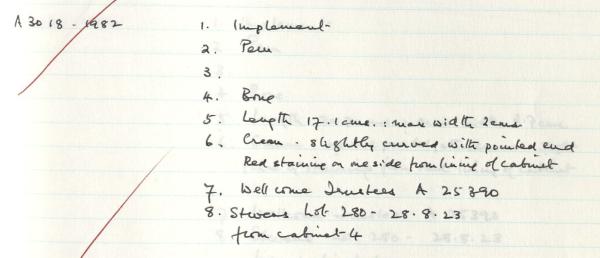 A 3018 - 1982 1. Implement
2. Peru
3.
4. Bone
5. Length 17.1cms. : max width 2cms
6. Cream. slightly curved with pointed end
Red staining on one side from lining of cabinet
7. Wellcome Trustees A 25390
8. Stevens Lot 280 - 28.8.23
from cabinet 4